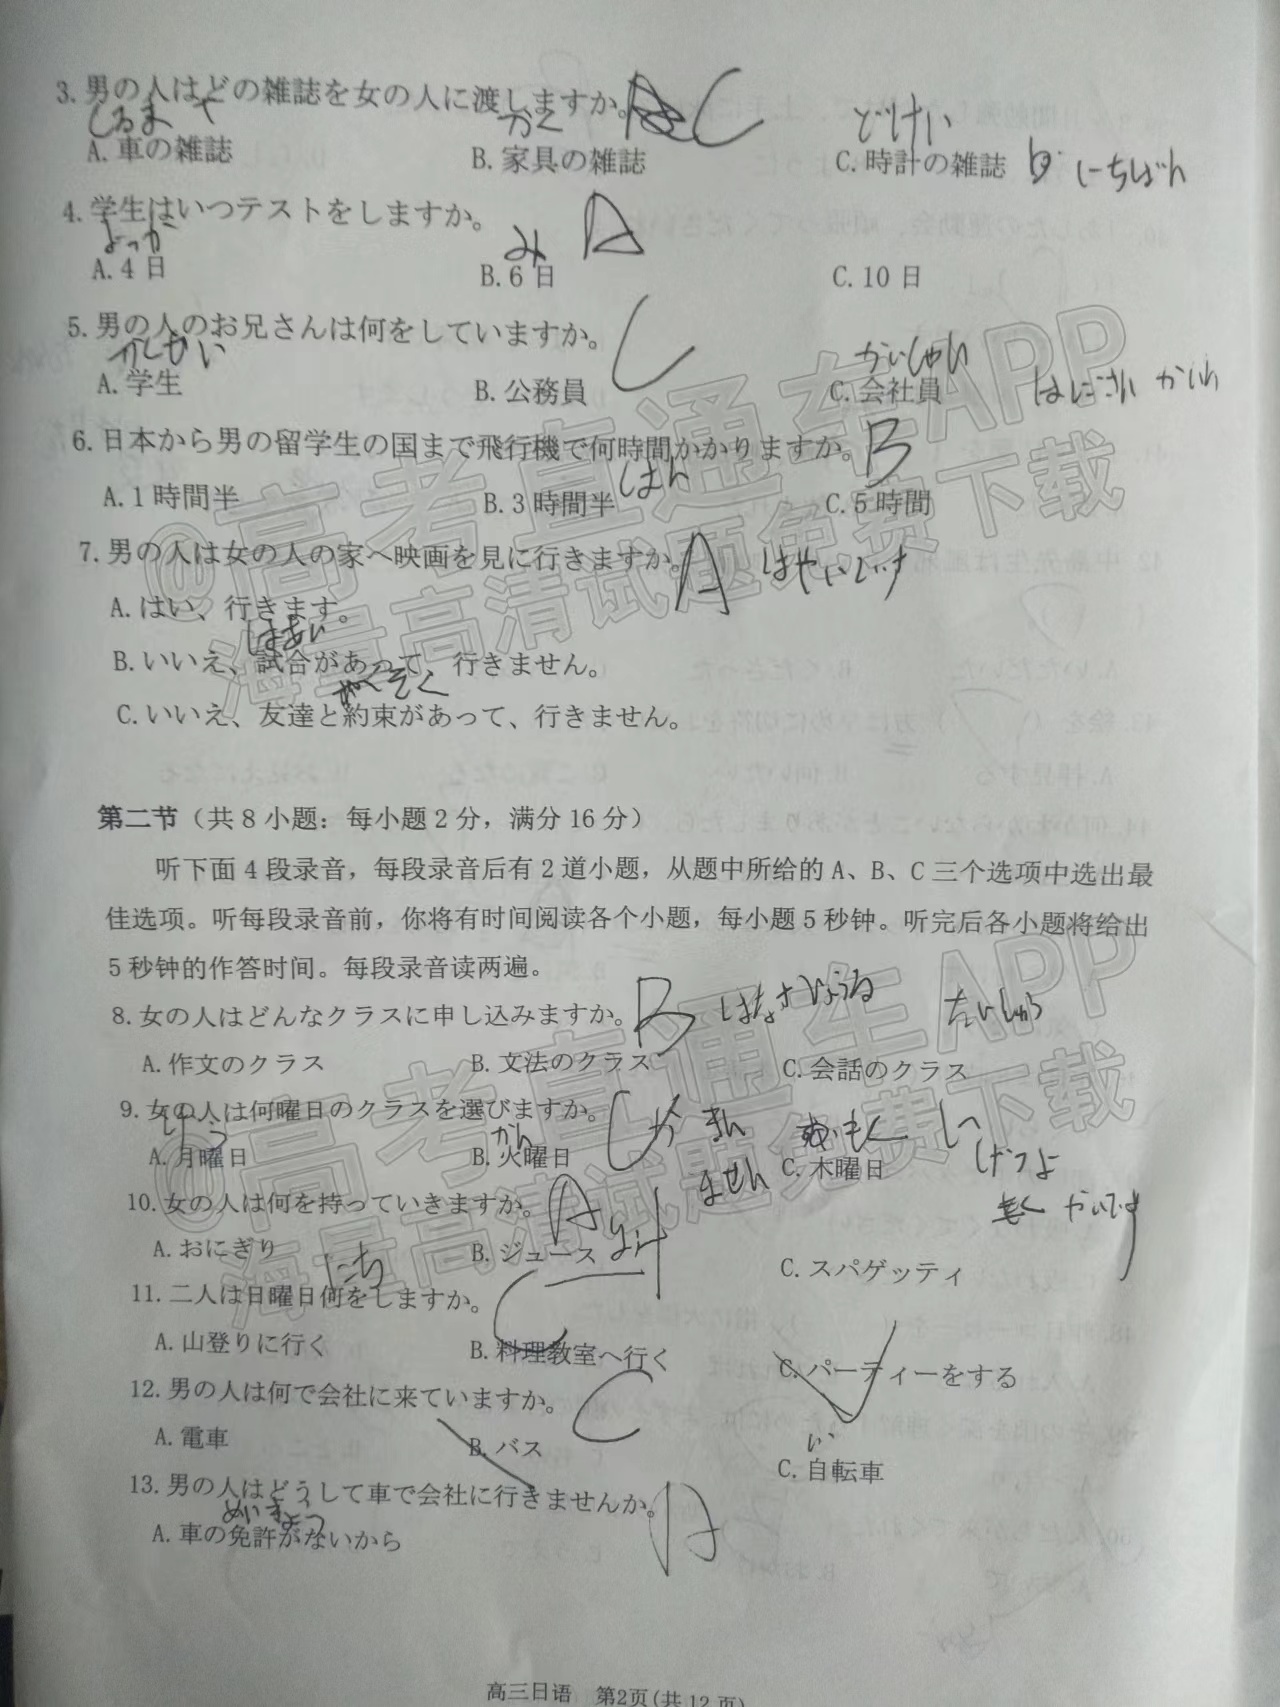 3. 男の人はどの雑誌を女の人に渡しますか。 C
A. 車の雑誌 B. 家具の雑誌 C. 時計の雑誌
4. 学生はいつテストをしますか。 A
A. 4日 B. 6日 C. 10日
5. 男の人のお兄さんは何をしていますか。 C
A. 学生 B. 公務員 C. 会社員
6. 日本から男の留学生の国まで飛行機で何時間かかりますか。 B
A. 1時間半 B. 3時間半 C. 5時間
7. 男の人は女の人の家へ映画を見に行きますか。 A
A. はい、行きます。
B. いいえ、試合があって、行きません。
C. いいえ、友達と約束があって、行きません。
第二节（共8小题：每小题2分，满分16分）
听下面4段录音，每段录音后有2道小题，从题中所给的A、B、C三个选项中选出最
佳选项。听每段录音前，你将有时间阅读各个小题，每小题5秒钟。听完后各小题将给出
5秒钟的作答时间。每段录音读两遍。
8. 女の人はどんなクラスに申し込みますか。 B
A. 作文のクラス B. 文法のクラス C. 会話のクラス
9. 女の人は何曜日のクラスを選びますか。
A. 月曜日 B. 火曜日 C. 木曜日
10. 女の人は何を持っていきますか。 A
A. おにぎり B. ジュース C. スパゲッティ
11. 二人は日曜日何をしますか。 C
A. 山登りに行く B. 料理教室へ行く C. パーティーをする
12. 男の人は何で会社に来ていますか。 C
A. 電車 B. バス C. 自転車
13. 男の人はどうして車で会社に行きませんか。 A
A. 車の免許がないから
高三日语 第2页(共12页)
@高考直通车APP
海量高清试题免费下载
@高考直通车APP
海量高清试题免费下载